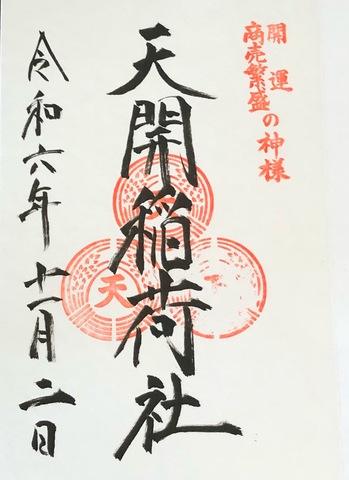 開運
商売繁盛の神様
天開稲荷社
天
令和六年十一月二日